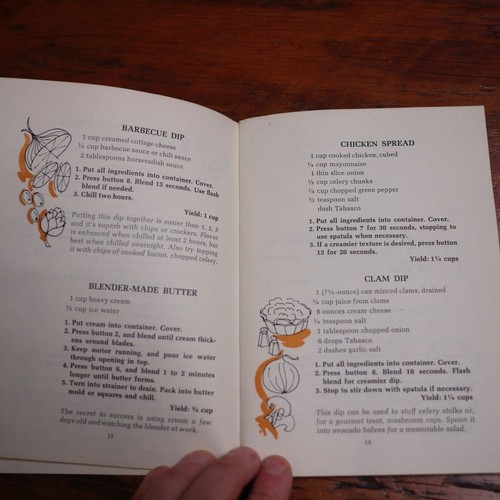 BARBECUE DIP
1 cup creamed cottage cheese
½ cup barbecue sauce or chili sauce
2 tablespoons horseradish sauce
1. Put all ingredients into container. Cover.
2. Press button 8. Blend 15 seconds. Use flash
blend if needed.
3. Chill two hours.
Yield: 1 cup
Putting this dip together is easier than 1, 2, 3
and it's superb with chips or crackers. Flavor
is enhanced when chilled at least 2 hours, but
best when chilled overnight. Also try topping
it with chips of cooked bacon, chopped celery.
BLENDER-MADE BUTTER
1 cup heavy cream
¾ cup ice water
1. Put cream into container. Cover.
2. Press button 2, and blend until cream thick-
ens around blades.
3. Keep motor running, and pour ice water
through opening in top.
4. Press button 6, and blend 1 to 2 minutes
longer until butter forms.
5. Turn into strainer to drain. Pack into butter
mold or squares and chill.
Yield: ¾ cup
The secret to success is using cream a few
days old and watching the blender at work.
12
CHICKEN SPREAD
1 cup cooked chicken, cubed
¼ cup mayonnaise
1 thin slice onion
½ cup celery chunks
¼ cup chopped green pepper
½ teaspoon salt
dash Tabasco
1. Put all ingredients into container. Cover.
2. Press button 7 for 30 seconds, stopping to
use spatula when necessary.
3. If a creamier texture is desired, press button
13 for 20 seconds.
Yield: 1¼ cups
CLAM DIP
1 (7½-ounce) can minced clams, drained
¼ cup juice from clams
8 ounces cream cheese
¼ teaspoon salt
1 tablespoon chopped onion
6 drops Tabasco
2 dashes garlic salt
1. Put all ingredients into container. Cover.
2. Press button 8. Blend 10 seconds. Flash
blend for creamier dip.
3. Stop to stir down with spatula if necessary.
Yield: 1¾ cups
This dip can be used to stuff celery stalks or,
for a gourmet treat, mushroom caps. Spoon it
into avocado halves for a memorable salad.
13